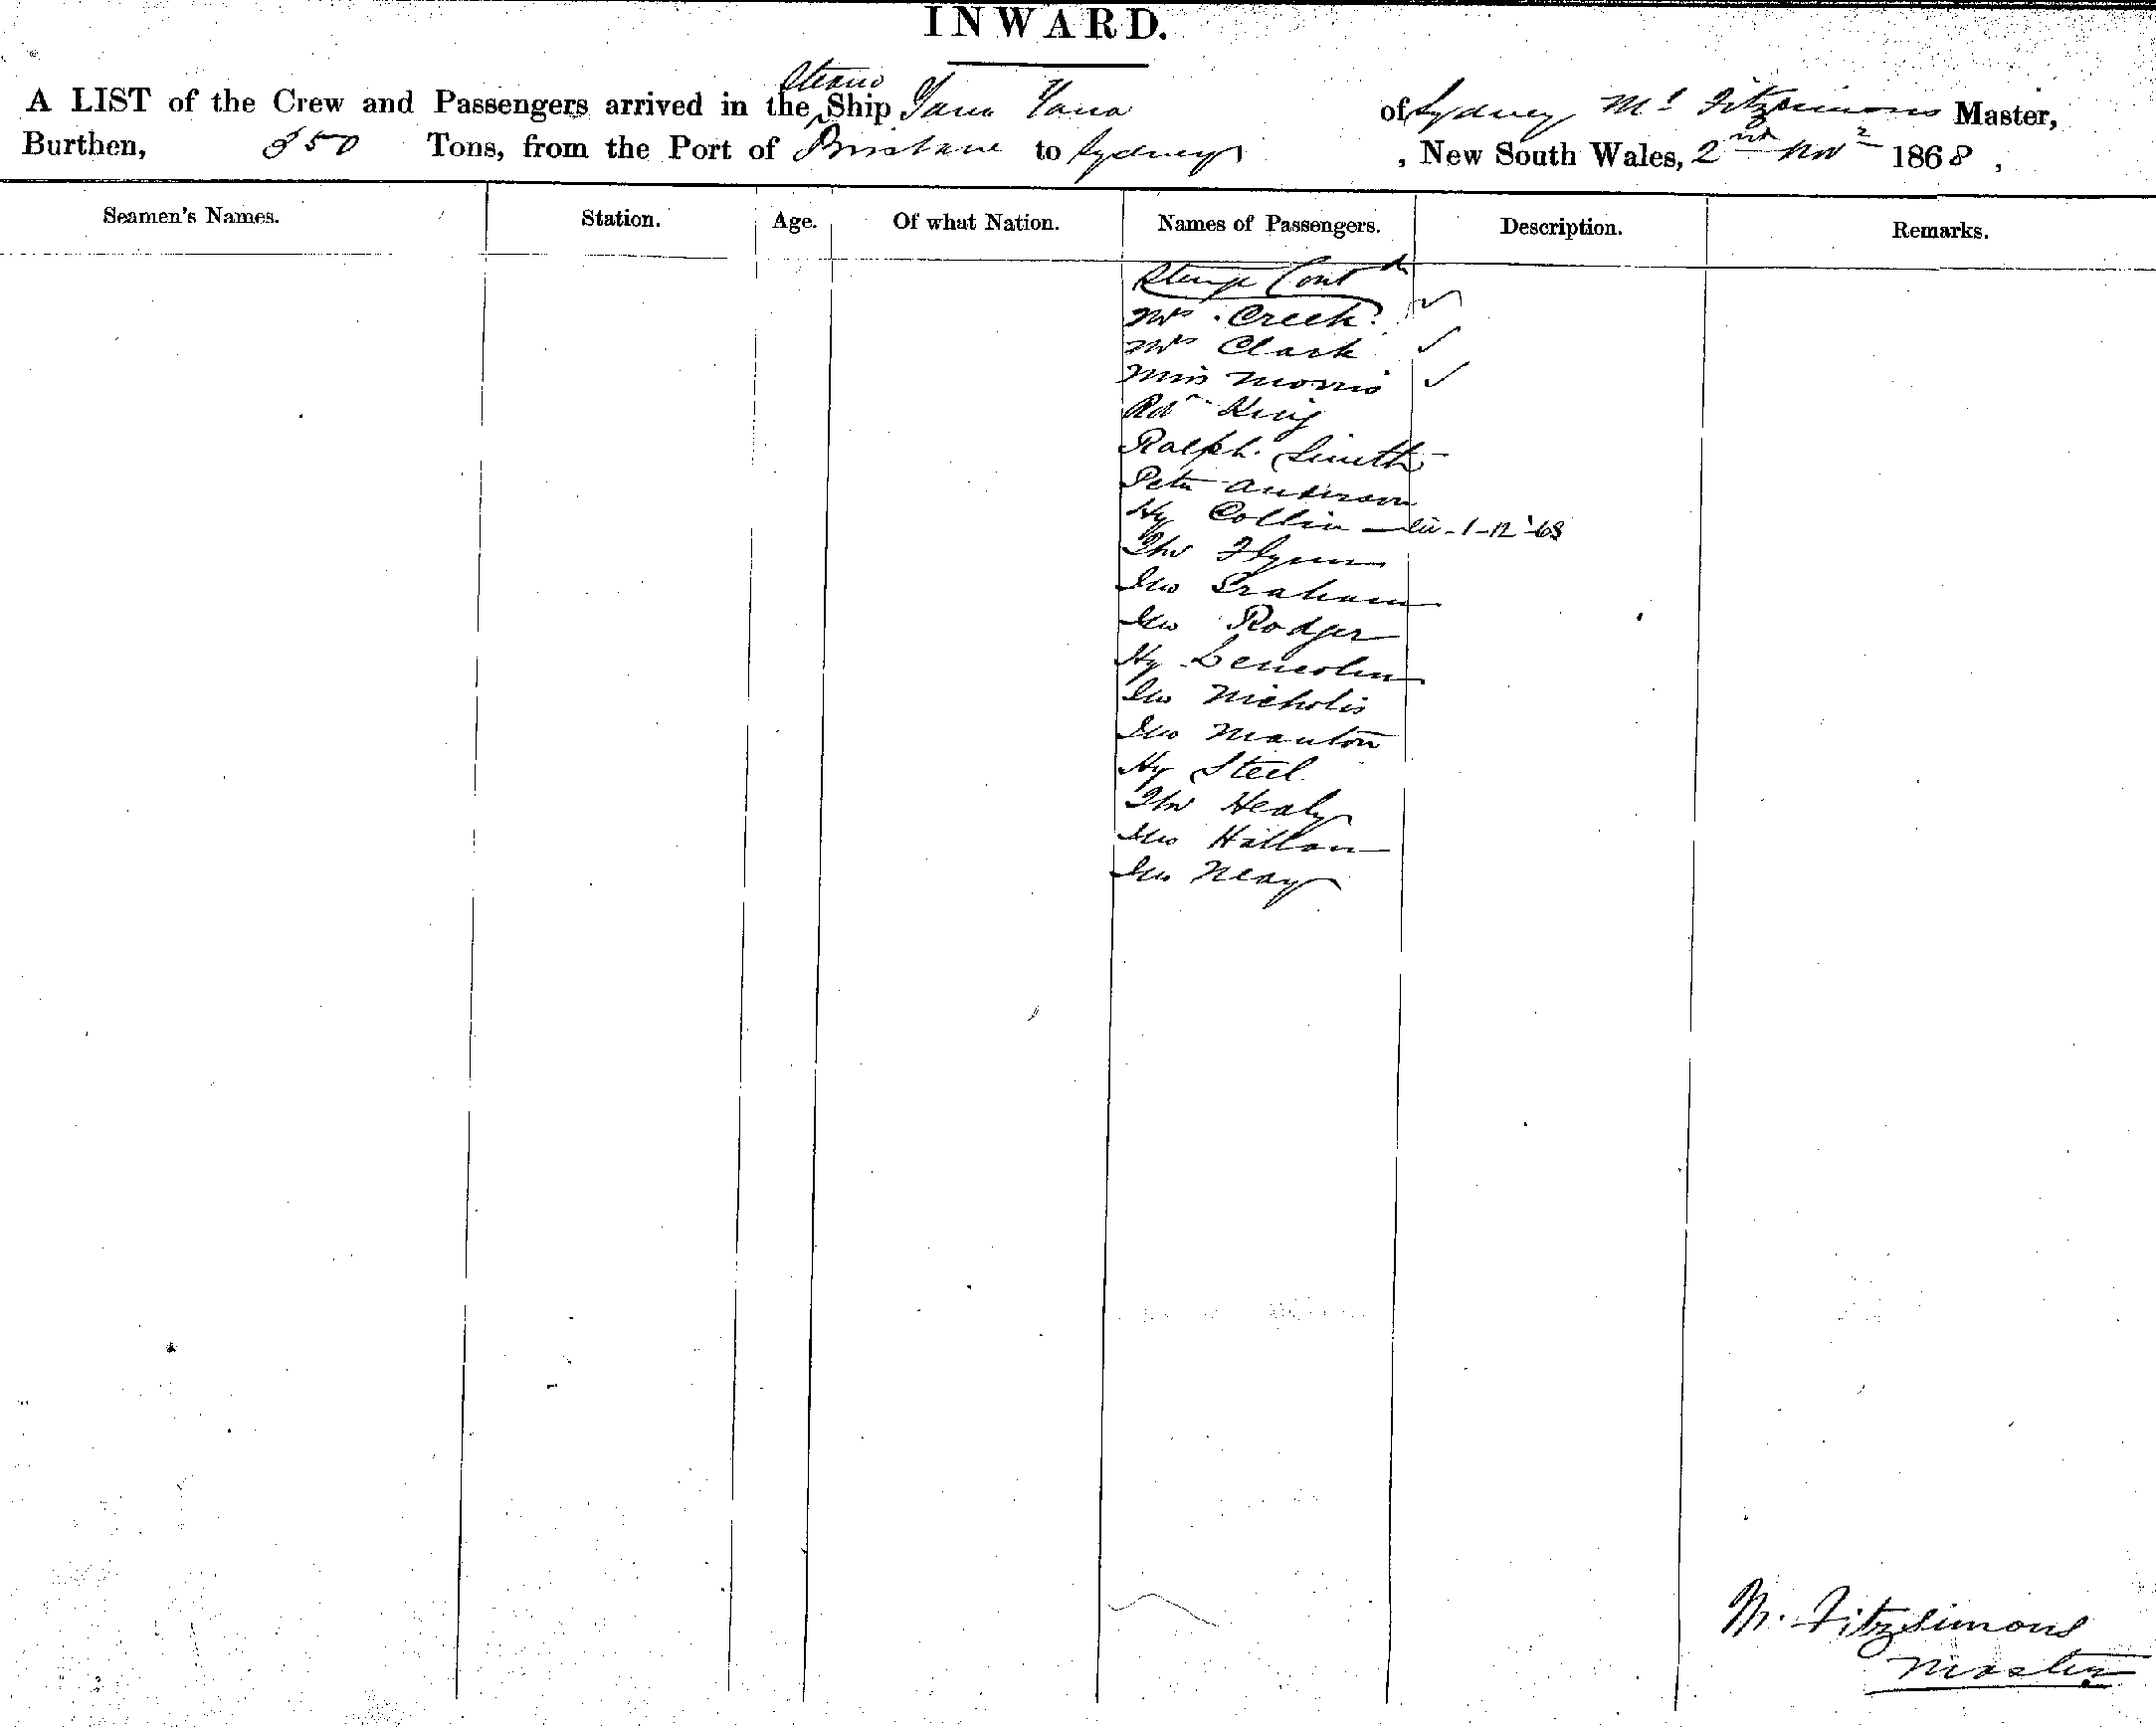 INWARD.
A LIST of the Crew and Passengers arrived in the Steam Ship Yarra Yarra of Sydney M. Fitzsimons Master,
Burthen, 350 Tons, from the Port of Brisbane to Sydney, New South Wales, 2nd Nov 1868,
Seamen's Names. Station. Age. Of what Nation. Names of Passengers. Description. Remarks.
Steerage Contd
Mrs Creek ✓
Mrs Clark ✓
Miss Morris ✓
Rd King
Ralph Smith
Peter Anderson
Hy Collin 1-12-'68
Thos Flynn
Graham
Rodger
Hy
Nicholis
Manton
Hy Steel
Thos Healy
Hallan
Neay
M. Fitzsimons
Master